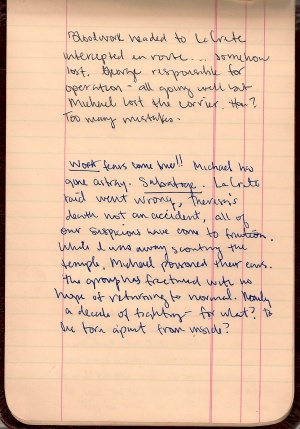 Bloodwork headed to LaCrete
intercepted en route... somehow
lost. George responsible for
operation - all going well but
Michael lost the carrier. How?
Too many mistakes.
Worst fears come true!! Michael has
gone astray. Sabotage. LaCrete
raid went wrong, Theresa's
death not an accident, all of
our suspicions have come to fruition.
While I was away scouting the
temple, Michael poisoned their ears.
The group has fractured with no
hope of returning to normal. Nearly
a decade of fighting - for what? To
be torn apart from inside?